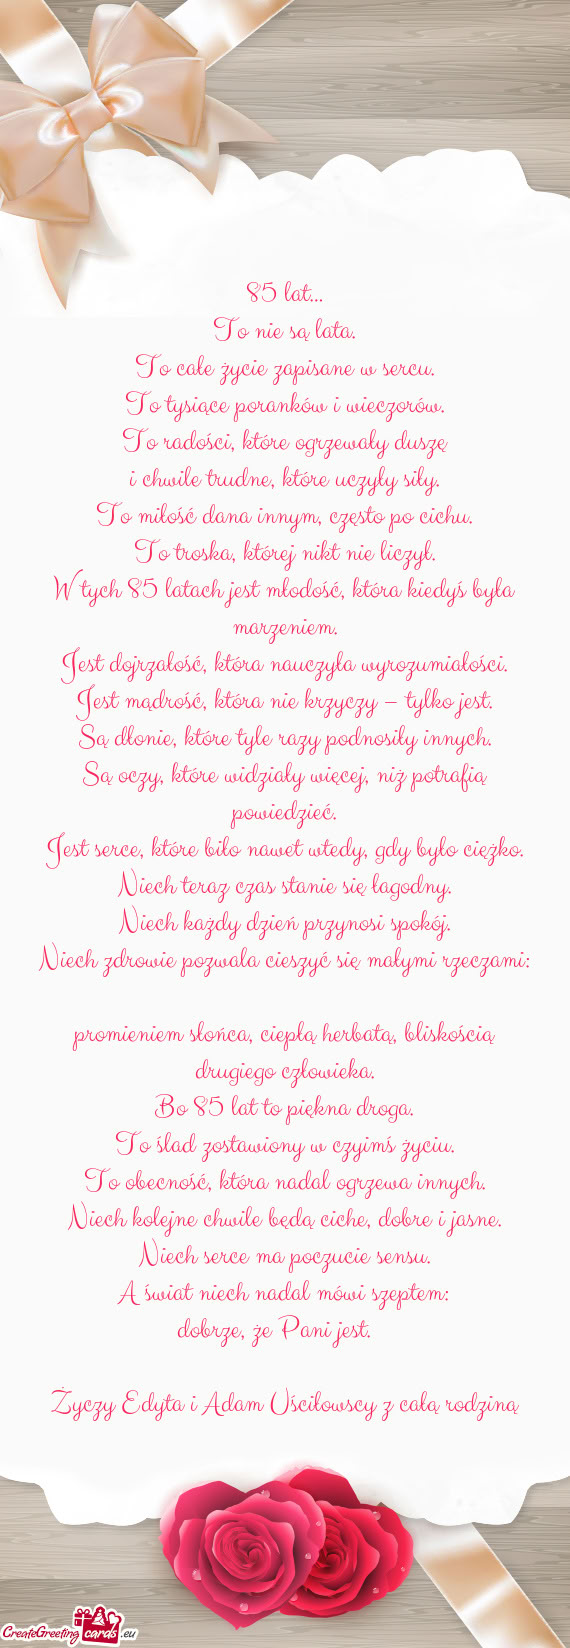 85 lat...
To nie są lata.
To całe życie zapisane w sercu.
To tysiące poranków i wieczorów.
To radości, które ogrzewały duszę
i chwile trudne, które uczyły siły.
To miłość dana innym, często po cichu.
To troska, której nikt nie liczył.
W tych 85 latach jest młodość, która kiedyś była
marzeniem.
Jest dojrzałość, która nauczyła wyrozumiałości.
Jest mądrość, która nie krzyczy – tylko jest.
Są dłonie, które tyle razy podnosiły innych.
Są oczy, które widziały więcej, niż potrafią
powiedzieć.
Jest serce, które biło nawet wtedy, gdy było ciężko.
Niech teraz czas stanie się łagodny.
Niech każdy dzień przynosi spokój.
Niech zdrowie pozwala cieszyć się małymi rzeczami:
promieniem słońca, ciepłą herbatą, bliskością
drugiego człowieka.
Bo 85 lat to piękna droga.
To ślad zostawiony w czyimś życiu.
To obecność, która nadal ogrzewa innych.
Niech kolejne chwile będą ciche, dobre i jasne.
Niech serce ma poczucie sensu.
A świat niech nadal mówi szeptem:
dobrze, że Pani jest.
Życzy Edyta i Adam Uściłowscy z całą rodziną
CreateGreeting cards .eu